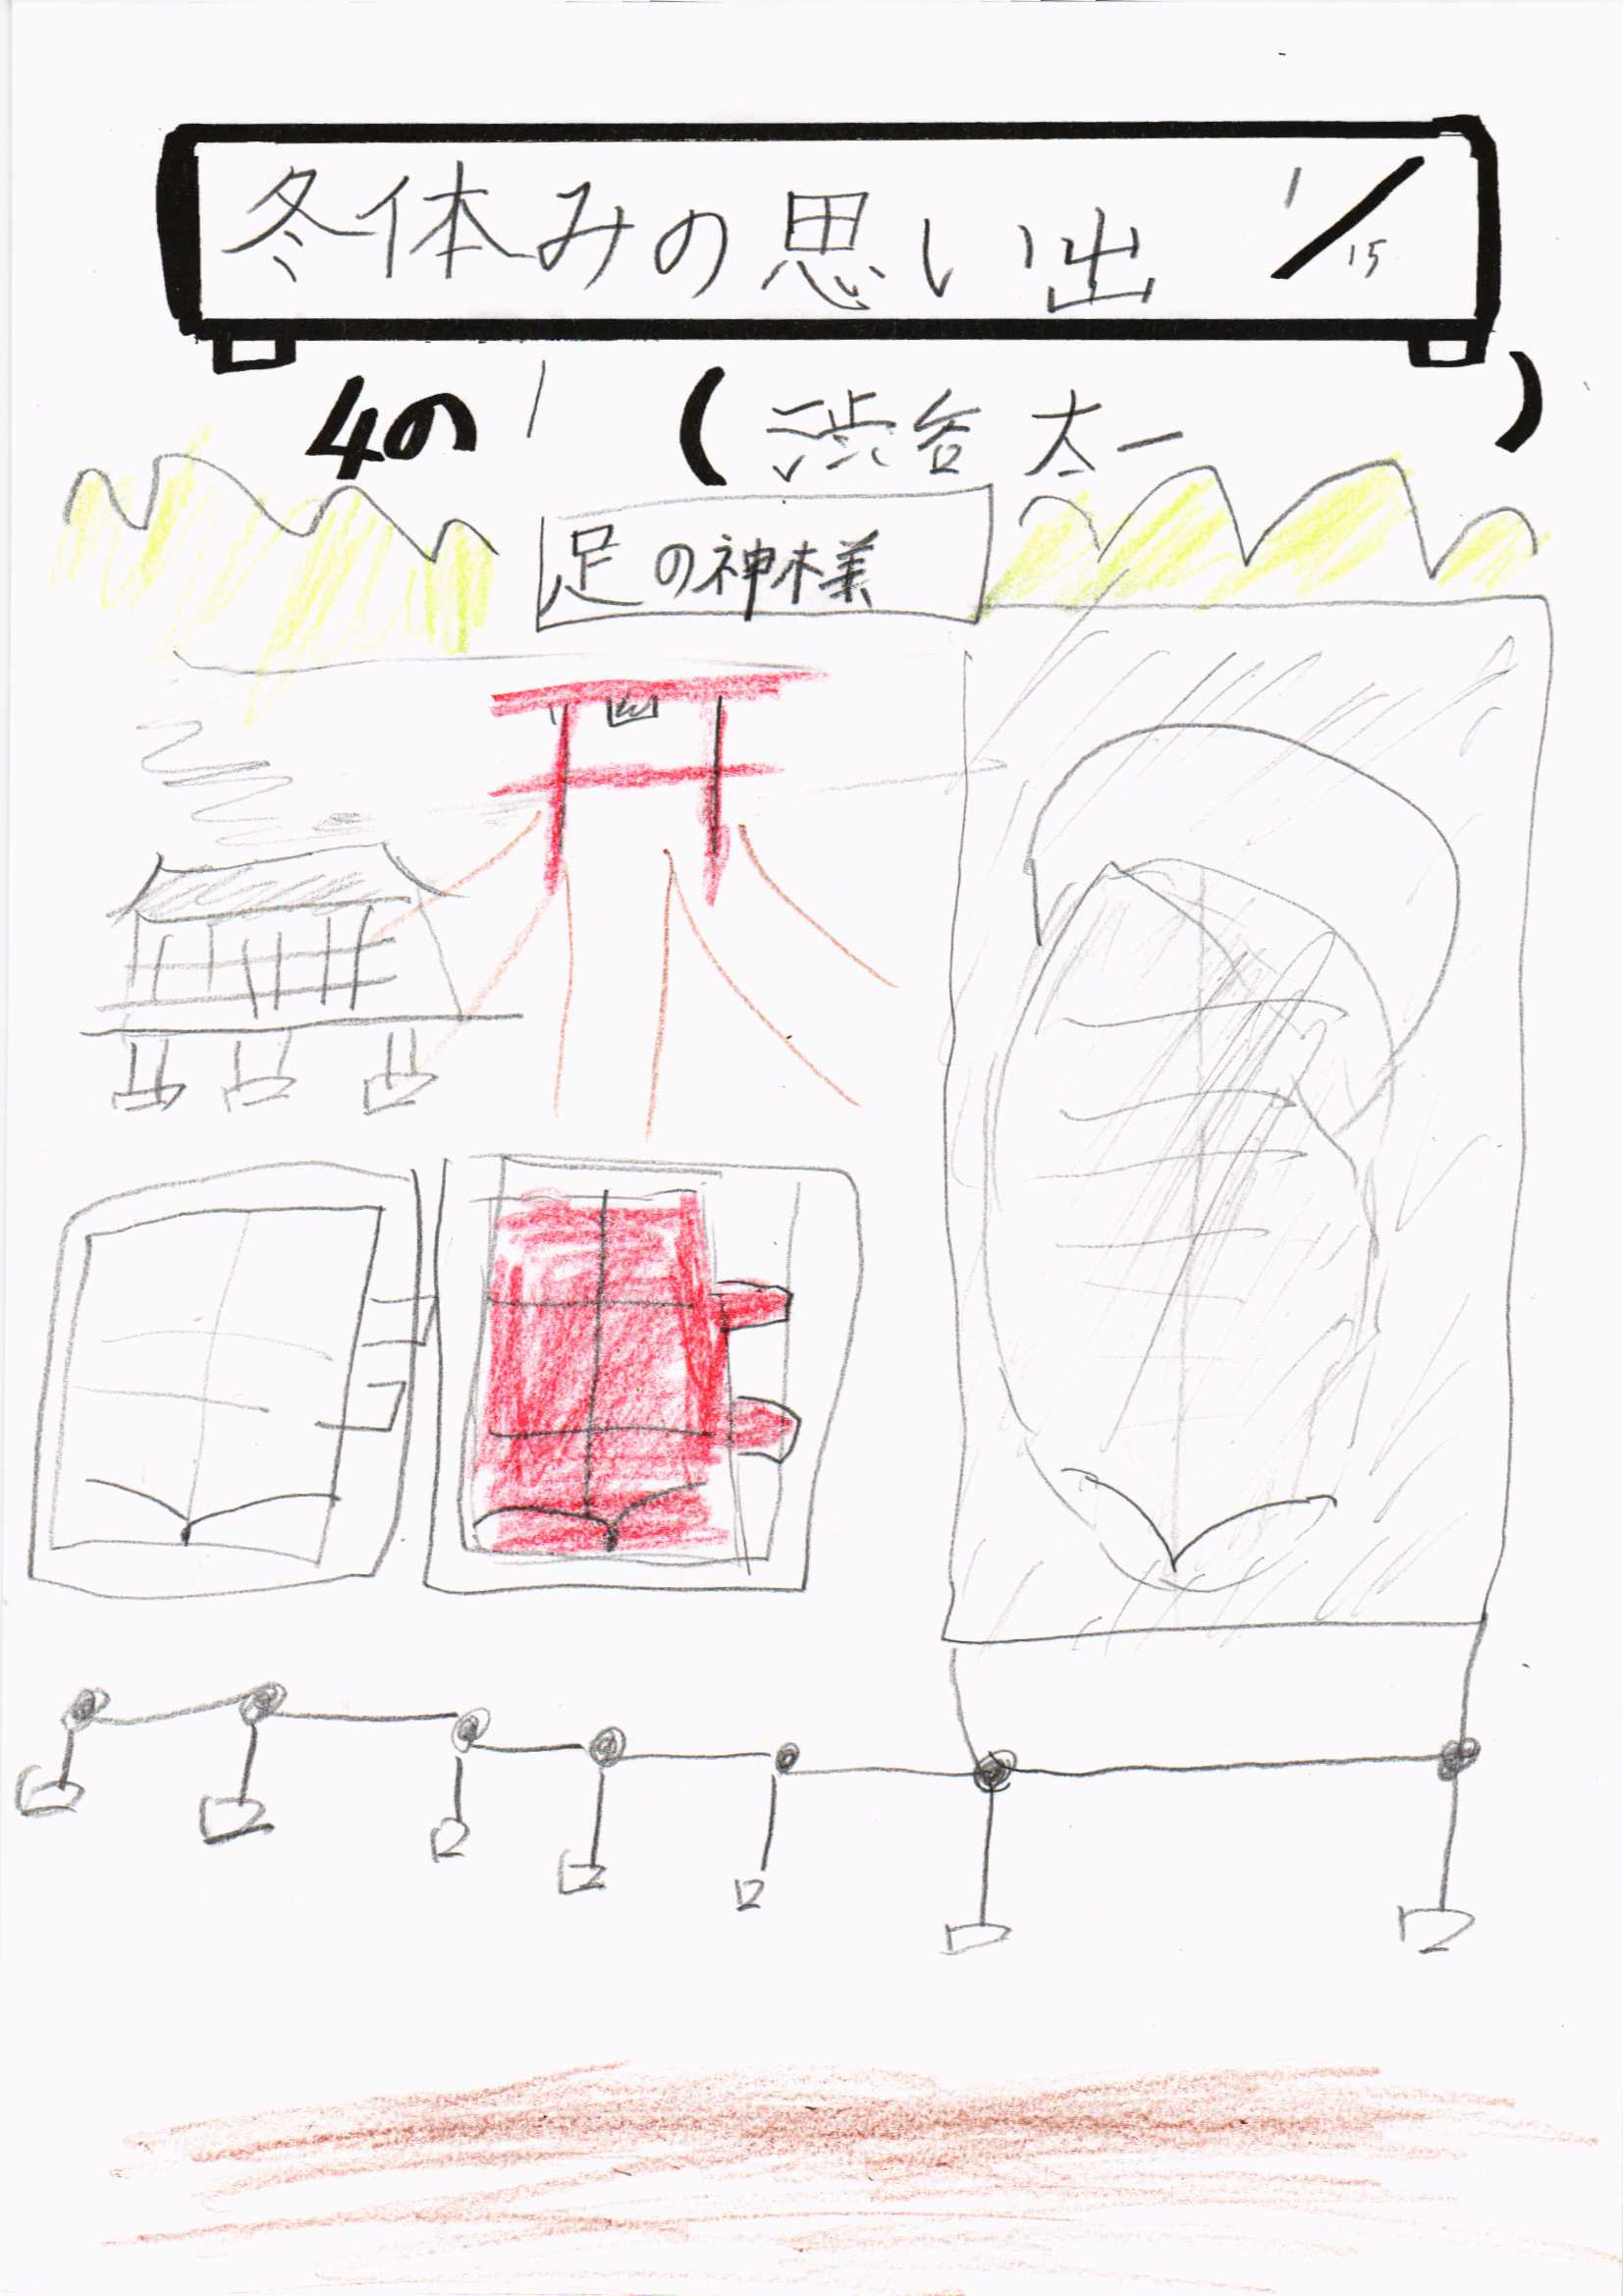 冬休みの思い出 1/15
4の1 (渋谷太一)
足の神様